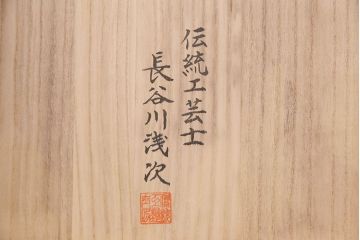 伝統工芸士
長谷川浅次